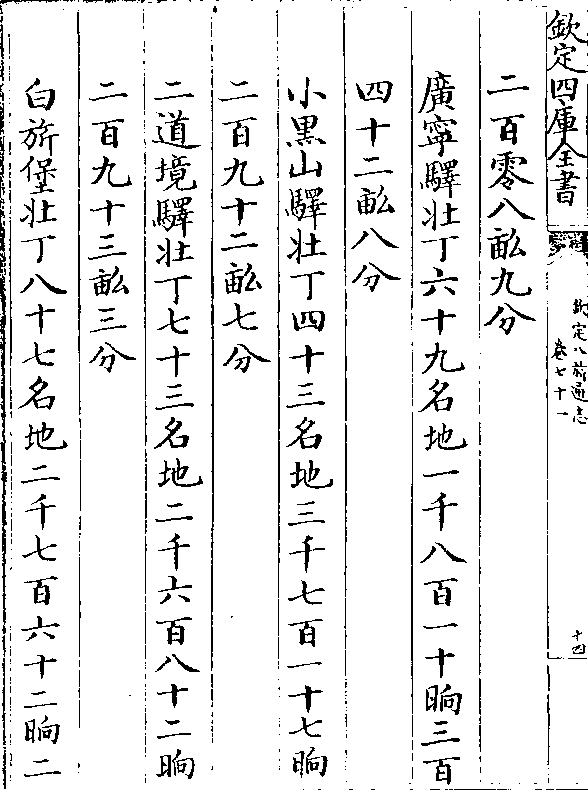 欽定四庫全書
欽定八旗通志
卷七十一
十四
二百零八畝九分
廣寧驛壯丁六十九名地一千八百一十晌三百
四十二畝八分
小黒山驛壯丁四十三名地三千七百一十七晌
二百九十二畝七分
二道境驛壯丁七十三名地二千六百八十二晌
二百九十三畝三分
白旂堡壯丁八十七名地二千七百六十二晌二